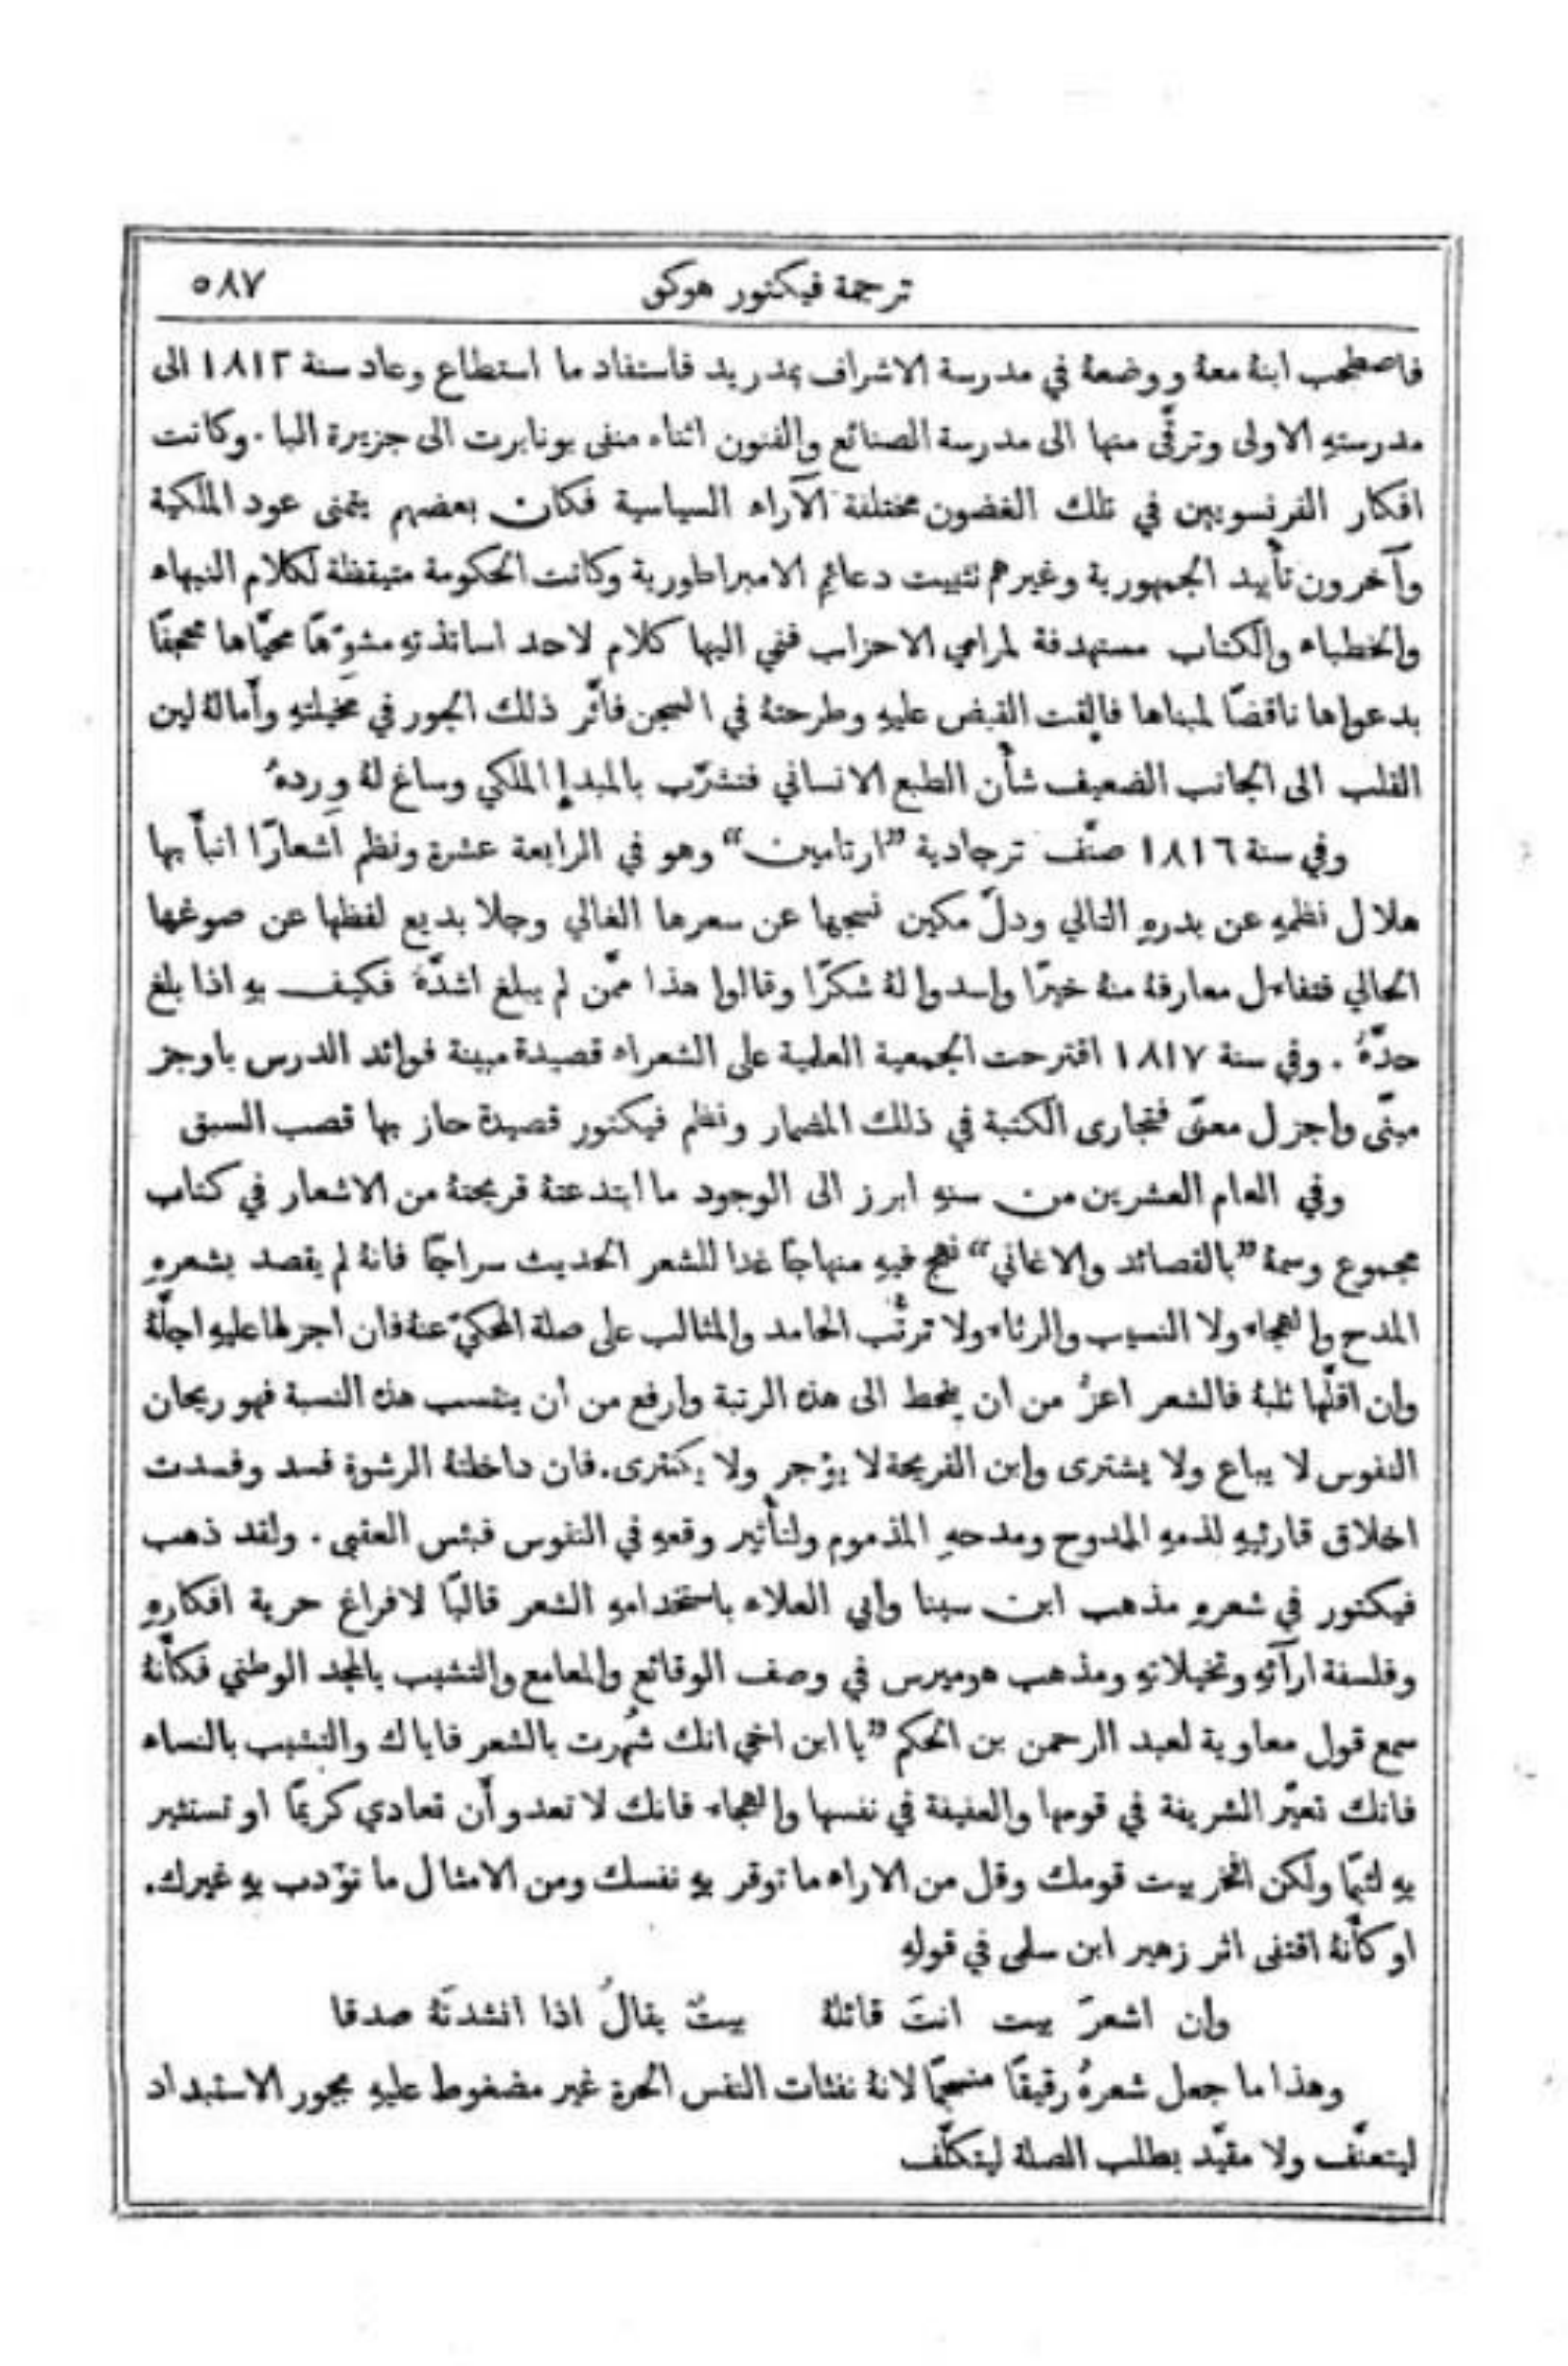 ترجمة فيكتور هوكو ٥٨٧
فاصطحب ابنهُ معهُ ووضعهُ في مدرسة الاشراف بمدريد فاستفاد ما استطاع وعاد سنة ١٨١٢ الى
مدرستهِ الاولى وترقَّى منها الى مدرسة الصنائع والفنون اثناء منفى بونابرت الى جزيرة البا. وكانت
افكار الفرنسويين في تلك الغضون مختلفة الآراء السياسية فكان بعضهم يتمنى عود الملكية
وآخرون تأييد الجمهورية وغيرهم تثبيت دعائم الامبراطورية وكانت الحكومة متيقظة لكلام النبهاء
والخطباء والكتاب مستهدفة لمرامي الاحزاب فنمي اليها كلام لاحد اساتذتهِ مشوّهًا محيَّاها مجحفًا
بدعواها ناقضًا لمبناها فالقت القبض عليهِ وطرحتهُ في السجن فاثَّر ذلك الجور في مخيلتهِ وأمالهُ لين
القلب الى الجانب الضعيف شأن الطبع الانساني فتشرَّب بالمبدإِ الملكي وساغ لهُ وِردهُ
وفي سنة ١٨١٦ صنَّف ترجادية ”ارتامين“ وهو في الرابعة عشرة ونظم اشعارًا انبأَ بها
هلال نظمهِ عن بدرهِ التالي ودلَّ مكين نسجها عن سعرها الغالي وجلا بديع لفظها عن صوغها
الحالي فتفاءل معارفهُ منهُ خيرًا واسدوا لهُ شكرًا وقالوا هذا ممَّن لم يبلغ اشدَّهُ فكيف بهِ اذا بلغ
حدَّهُ. وفي سنة ١٨١٧ اقترحت الجمعية العلمية على الشعراء قصيدة مبينة فوائد الدرس باوجز
مبنًى واجزل معنًى فتجارى الكتبة في ذلك المضمار ونظم فيكتور قصيدة حاز بها قصب السبق
وفي العام العشرين من سنهِ ابرز الى الوجود ما ابتدعتهُ قريحتهُ من الاشعار في كتاب
مجموع وسمهُ ”بالقصائد والاغاني“ نهج فيهِ منهاجًا غدا للشعر الحديث سراجًا فانهُ لم يقصد بشعرهِ
المدح والهجاء ولا النسيب والرثاء ولا ترتُّب المحامد والمثالب على صلة المحكيّ عنهُ فان اجزلها عليهِ اجلَّهُ
وان اقلَّها ثلبهُ فالشعر اعزُّ من ان ينحط الى هذه الرتبة وارفع من ان ينتسب هذه النسبة فهو ريحان
النفوس لا يباع ولا يشترى وابن القريحة لا يؤجر ولا يكترى. فان داخلتهُ الرشوة فسد وفسدت
اخلاق قارئيهِ لذمهِ الممدوح ومدحهِ المذموم ولتأثير وقعهِ في النفوس فبئس العقبى. ولقد ذهب
فيكتور في شعرهِ مذهب ابن سينا وابي العلاء باستخدامهِ الشعر قالبًا لافراغ حرية افكارهِ
وفلسفة ارآئهِ وتخيلاتهِ ومذهب هوميرس في وصف الوقائع والمعامع والتشبب بالمجد الوطني فكأَنَّهُ
سمع قول معاوية لعبد الرحمن بن الحكم ”يا ابن اخي انك شُهِرت بالشعر فاياك والتشبب بالنساء
فانك تعيّر الشريفة في قومها والعفيفة في نفسها والهجاء فانك لا تعدو أَن تعادي كريمًا او تستثير
بهِ لئيمًا ولكن افخر ببيت قومك وقل من الاراء ما توقر بهِ نفسك ومن الامثال ما تؤدب بهِ غيرك.
او كأَنَّهُ اقتفى اثر زهير ابن سلمى في قولهِ
وان اشعرَ بيت انتَ قائلهُ بيتٌ يقالُ اذا انشدتَهُ صدقا
وهذا ما جعل شعرهُ رقيقًا منسجمًا لانهُ نفثات النفس الحرة غير مضغوط عليهِ بجور الاستبداد
ليتعنَّف ولا مقيَّد بطلب الصلة ليتكلَّف